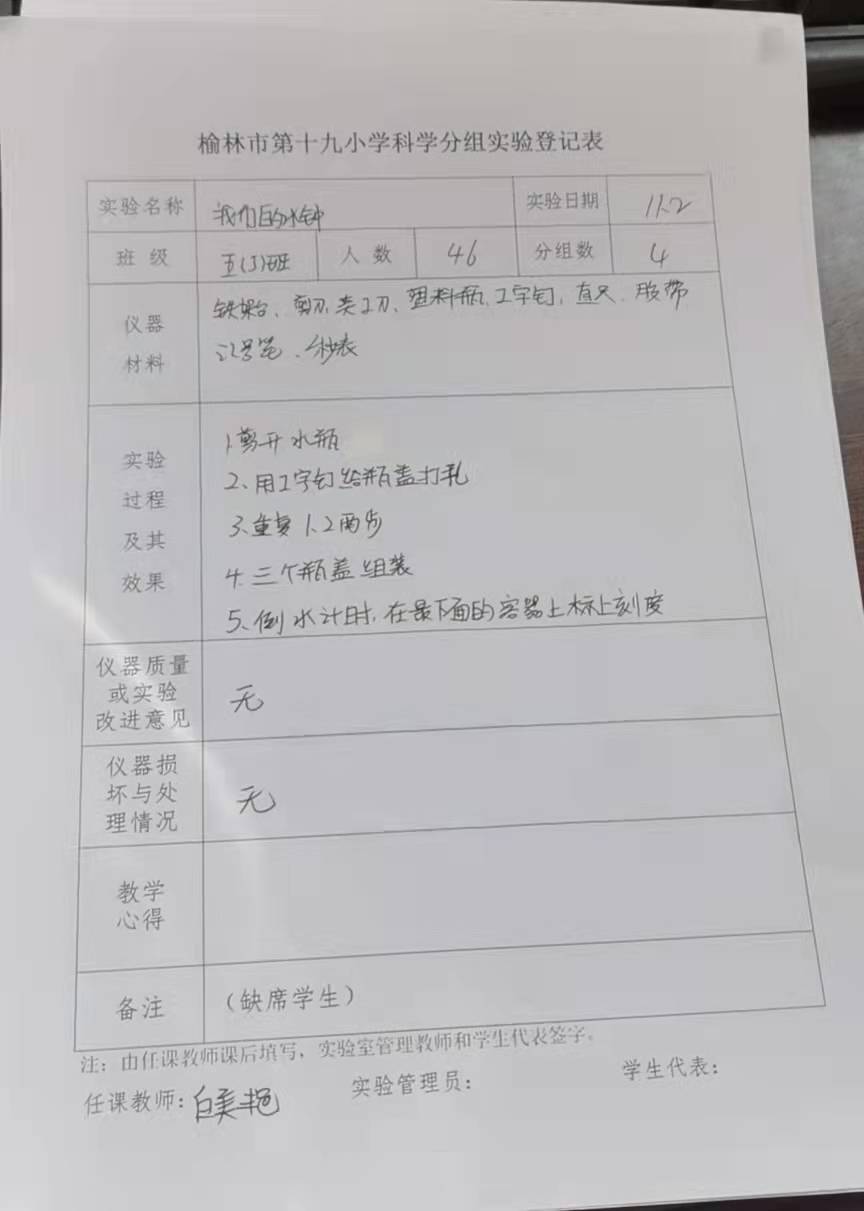 榆林市第十九小学科学分组实验登记表
实验名称 我们的水钟 实验日期 11.2
班 级 五(3)班 人 数 46 分组数 4
仪器
材料
铁架台、剪刀、美工刀、塑料瓶、工字钉、直尺、胶带
记号笔、秒表
实验
过程
及其
效果
1、剪开水瓶
2、用工字钉给瓶盖打孔
3、重复1、2两步
4、三个瓶盖组装
5、倒水计时,在最下面的容器上标上刻度
仪器质量
或实验
改进意见
无
仪器损
坏与处
理情况
无
教学
心得
备注 (缺席学生)
注:由任课教师课后填写,实验室管理教师和学生代表签字。
任课教师:白美艳 实验管理员: 学生代表: